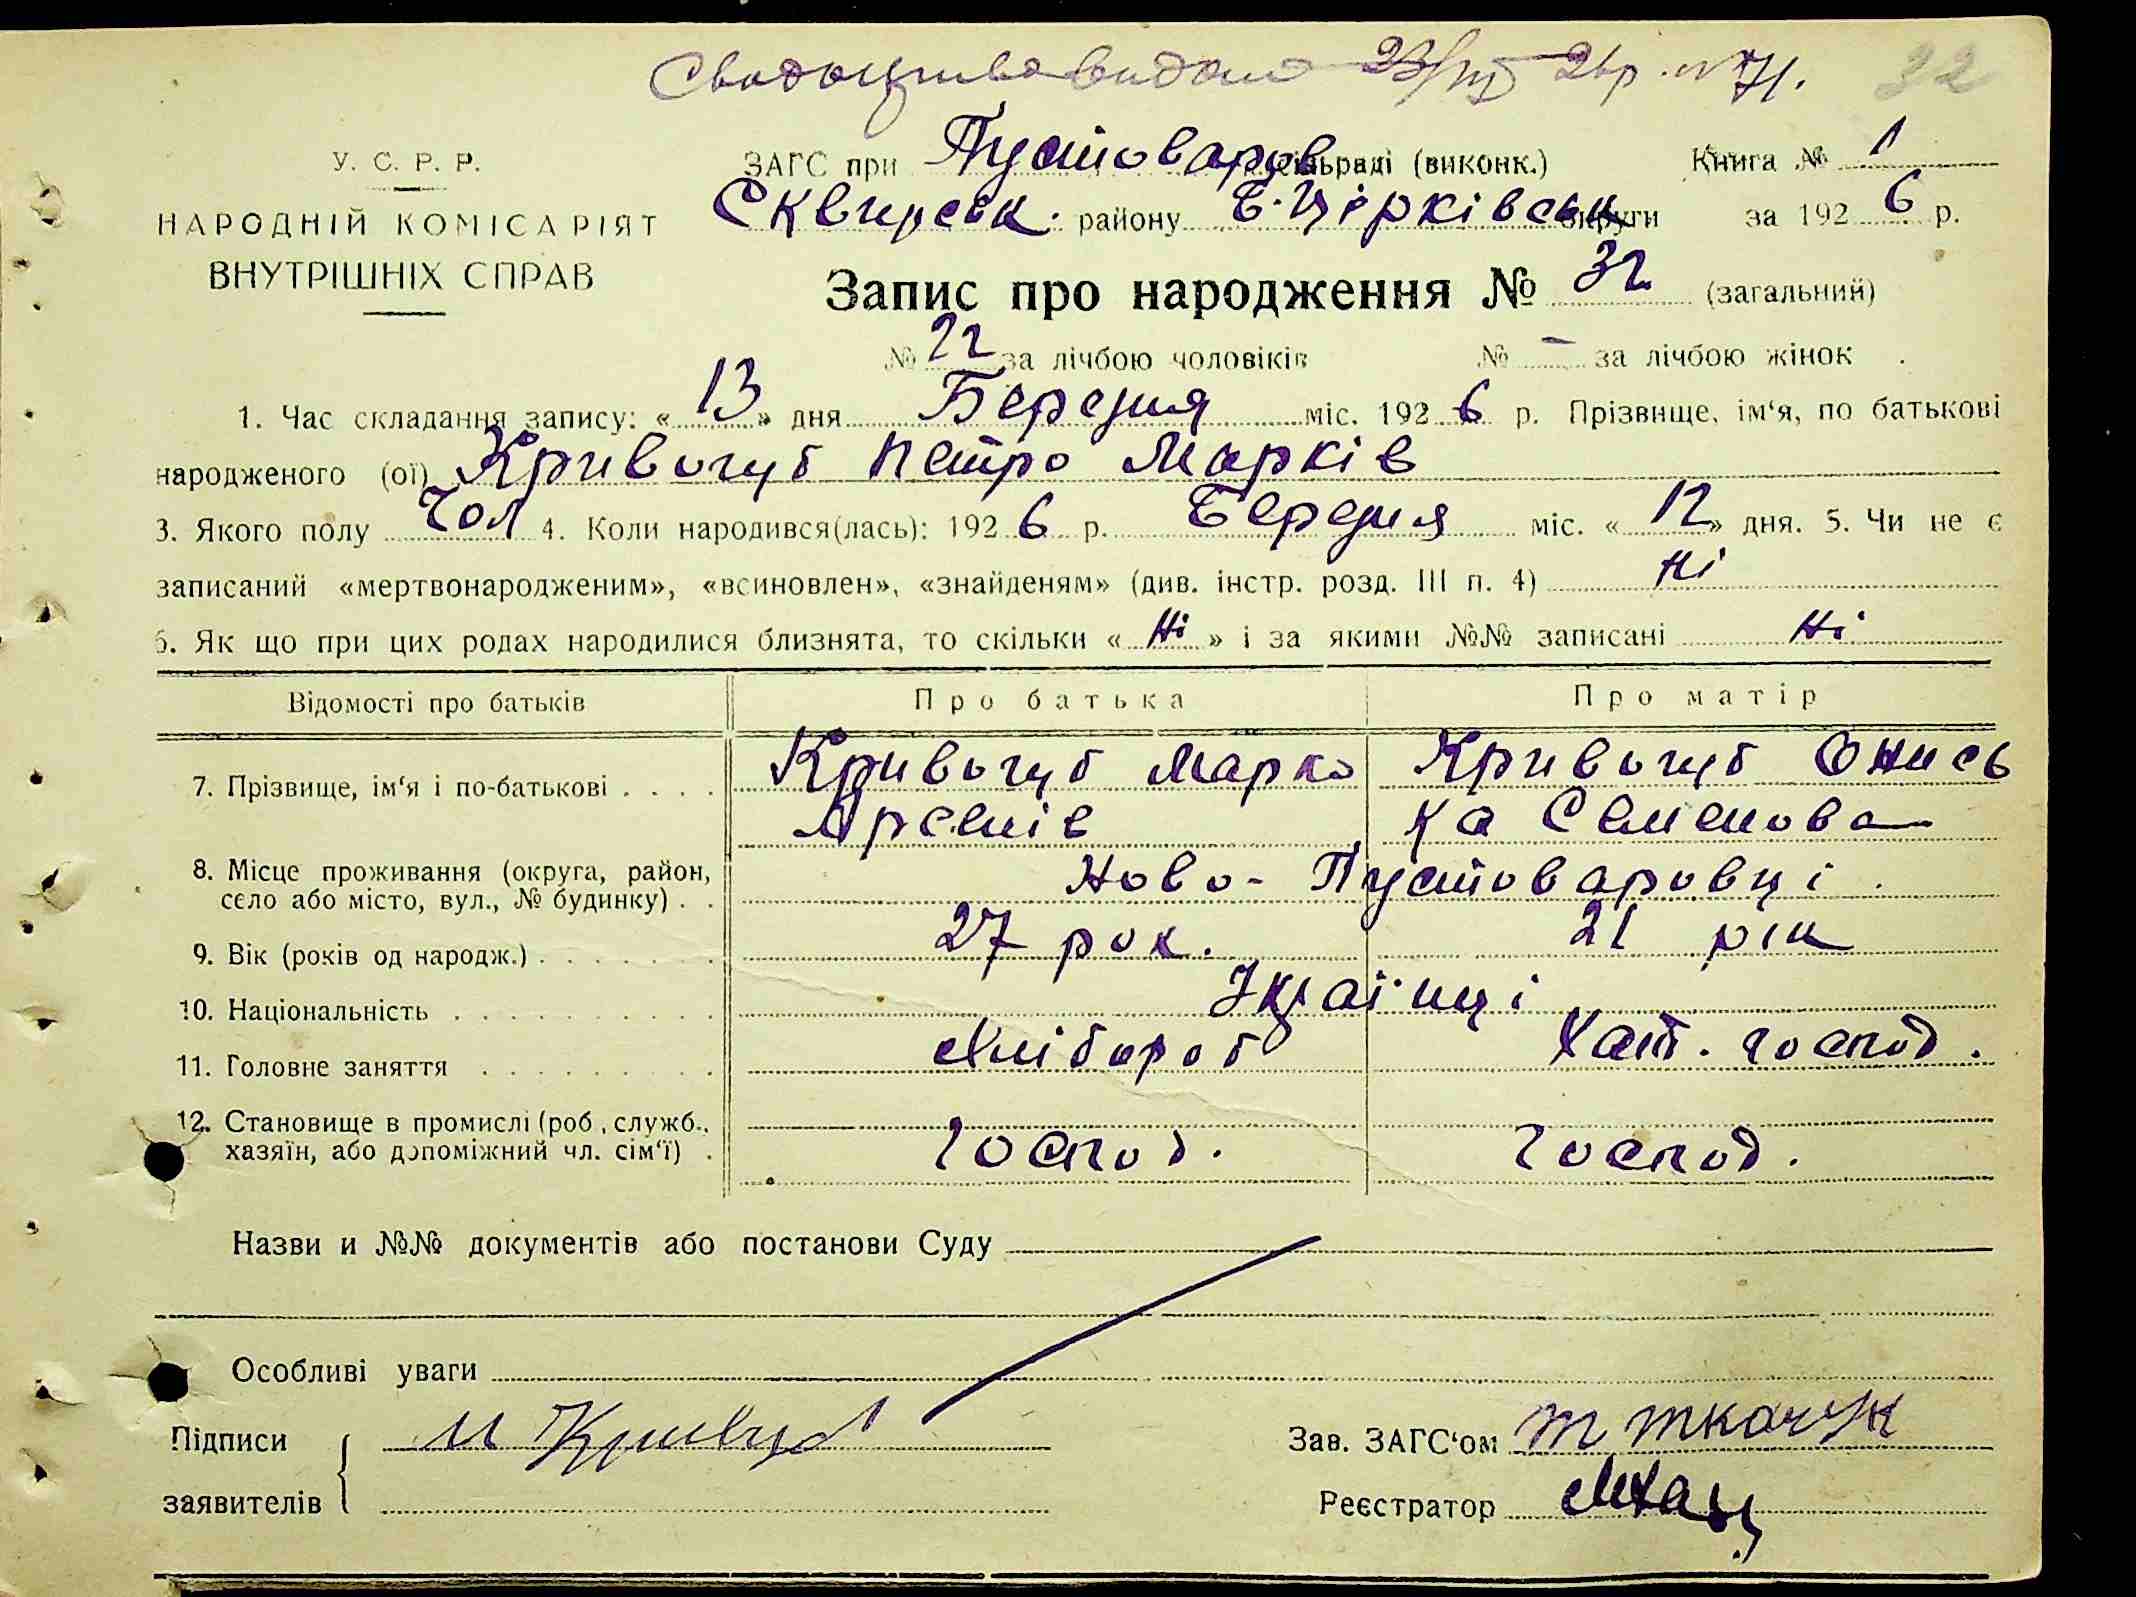 Свидоцтво видано 23/III 26 р. № 71. 32
У. С. Р. Р.
НАРОДНІЙ КОМІСАРІЯТ
ВНУТРІШНІХ СПРАВ
ЗАГС при Пустоваров сільраді (виконк.) Книга № 1
Сквирськ. району Б. Церківськ округи за 192 6 р.
Запис про народження № 32 (загальний)
№ 22 за лічбою чоловіків № – за лічбою жінок
1. Час складання запису: « 13 » дня Березня міс. 192 6 р. Прізвище, ім‘я, по батькові
народженого (ої) Кривогуб Петро Марків
3. Якого полу Чол 4. Коли народився(лась): 192 6 р. Березня міс. « 12 » дня. 5. Чи не є
записаний «мертвонародженим», «всиновлен», «знайденям» (див. інстр. розд. III п. 4) Ні
6. Як що при цих родах народилися близнята, то скільки « Ні » і за якими №№ записані Ні
Відомості про батьків Про батька Про матір
7. Прізвище, ім‘я і по-батькові Кривогуб Марко Кривогуб Онись
Арсенів ка Семенова
8. Місце проживання (округа, район,
село або місто, вул., № будинку) Ново-Пустоваровці
9. Вік (років од народж.) 27 рок. 21 рік
10. Національність Українці
11. Головне заняття Хлібороб Хат. господ.
12. Становище в промислі (роб, служб.,
хазяїн, або допоміжний чл. сім‘ї) Господ. Господ.
Назви и №№ документів або постанови Суду
Особливі уваги
Підписи М Кривгуб Зав. ЗАГС‘ом Т Ткачук
заявителів Реєстратор